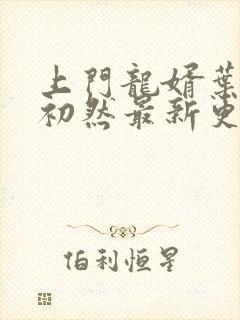 上門龍婿葉
初然最新更
伯利恒星